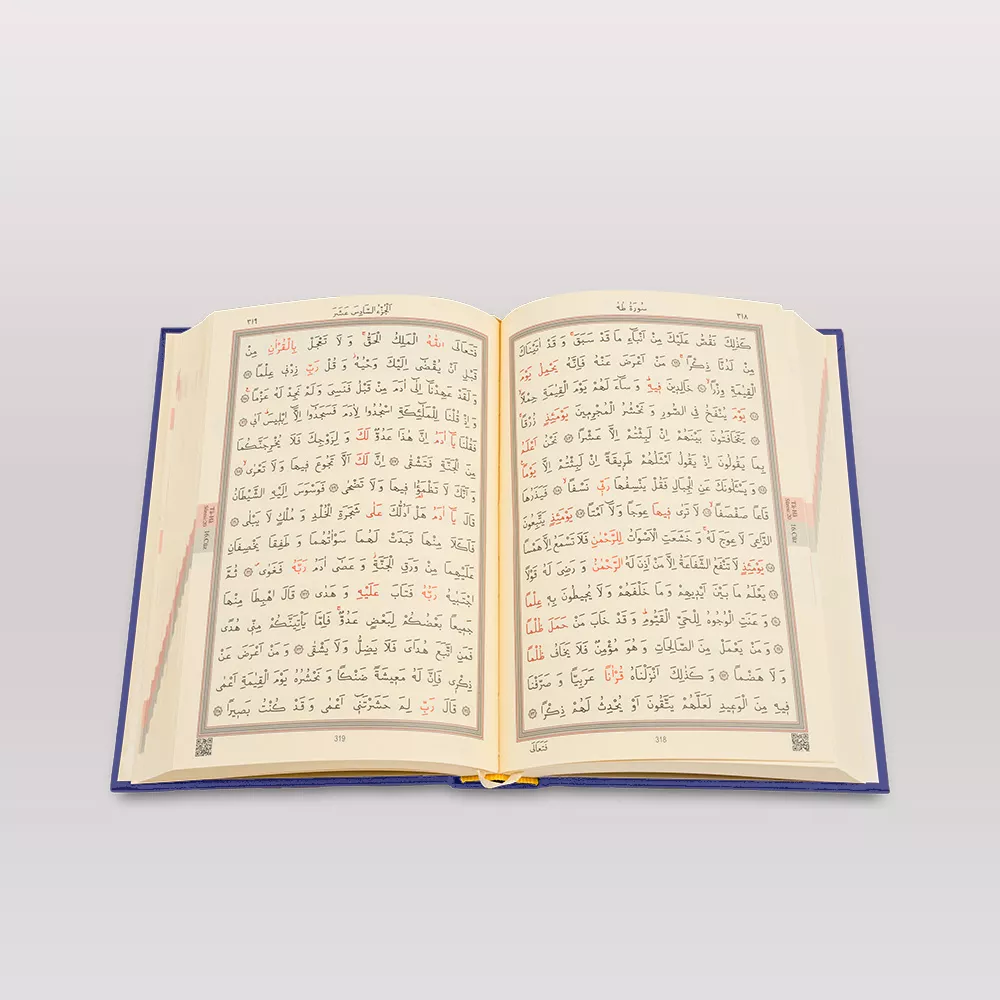 سُورَةُ طٰهٰ
٣١٨
كَذٰلِكَ نَقُصُّ عَلَيْكَ مِنْ اَنْبَٓاءِ مَا قَدْ سَبَقَۚ وَ قَدْ اٰتَيْنَاكَ
مِنْ لَدُنَّا ذِكْرًاۚ ۝ مَنْ اَعْرَضَ عَنْهُ فَاِنَّهُ يَحْمِلُ يَوْمَ
الْقِيٰمَةِ وِزْرًاۙ ۝ خَالِدِينَ فِيهِؕ وَ سَٓاءَ لَهُمْ يَوْمَ الْقِيٰمَةِ حِمْلًاۙ
۝ يَوْمَ يُنْفَخُ فِي الصُّورِ وَ نَحْشُرُ الْمُجْرِمِينَ يَوْمَئِذٍ زُرْقًاۚ
۝ يَتَخَافَتُونَ بَيْنَهُمْ اِنْ لَبِثْتُمْ اِلَّا عَشْرًا ۝ نَحْنُ اَعْلَمُ
بِمَا يَقُولُونَ اِذْ يَقُولُ اَمْثَلُهُمْ طَرِيقَةً اِنْ لَبِثْتُمْ اِلَّا يَوْمًا۟
۝ وَ يَسْـَٔلُونَكَ عَنِ الْجِبَالِ فَقُلْ يَنْسِفُهَا رَبِّي نَسْفًاۙ ۝ فَيَذَرُهَا
قَاعًا صَفْصَفًاۙ ۝ لَا تَرٰى فِيهَا عِوَجًا وَلَٓا اَمْتًاؕ ۝ يَوْمَئِذٍ يَتَّبِعُونَ
الدَّاعِيَ لَا عِوَجَ لَهُۚ وَ خَشَعَتِ الْاَصْوَاتُ لِلرَّحْمٰنِ فَلَا تَسْمَعُ اِلَّا هَمْسًا
۝ يَوْمَئِذٍ لَا تَنْفَعُ الشَّفَاعَةُ اِلَّا مَنْ اَذِنَ لَهُ الرَّحْمٰنُ وَ رَضِيَ لَهُ قَوْلًا
۝ يَعْلَمُ مَا بَيْنَ اَيْدِيهِمْ وَ مَا خَلْفَهُمْ وَ لَا يُحِيطُونَ بِهِ عِلْمًا
۝ وَ عَنَتِ الْوُجُوهُ لِلْحَيِّ الْقَيُّومِؕ وَ قَدْ خَابَ مَنْ حَمَلَ ظُلْمًا
۝ وَ مَنْ يَعْمَلْ مِنَ الصَّالِحَاتِ وَ هُوَ مُؤْمِنٌ فَلَا يَخَافُ ظُلْمًا
وَ لَا هَضْمًا ۝ وَ كَذٰلِكَ اَنْزَلْنَاهُ قُرْاٰنًا عَرَبِيًّا وَ صَرَّفْنَا
فِيهِ مِنَ الْوَعِيدِ لَعَلَّهُمْ يَتَّقُونَ اَوْ يُحْدِثُ لَهُمْ ذِكْرًا ۝
فَتَعَالَى
318
اَلْجُزْءُ السَّادِسَ عَشَرَ
٣١٩
فَتَعَالَى اللّٰهُ الْمَلِكُ الْحَقُّۚ وَ لَا تَعْجَلْ بِالْقُرْاٰنِ مِنْ
قَبْلِ اَنْ يُقْضٰٓى اِلَيْكَ وَحْيُهُؗ وَ قُلْ رَبِّ زِدْنِي عِلْمًا ۝
وَ لَقَدْ عَهِدْنَٓا اِلٰٓى اٰدَمَ مِنْ قَبْلُ فَنَسِيَ وَلَمْ نَجِدْ لَهُ عَزْمًا۟ ۝
وَ اِذْ قُلْنَا لِلْمَلٰٓئِكَةِ اسْجُدُوا لِاٰدَمَ فَسَجَدُٓوا اِلَّٓا اِبْلِيسَؕ اَبٰى ۝
فَقُلْنَا يَٓا اٰدَمُ اِنَّ هٰذَا عَدُوٌّ لَكَ وَ لِزَوْجِكَ فَلَا يُخْرِجَنَّكُمَا
مِنَ الْجَنَّةِ فَتَشْقٰى ۝ اِنَّ لَكَ اَلَّا تَجُوعَ فِيهَا وَ لَا تَعْرٰىۙ ۝
وَ اَنَّكَ لَا تَظْمَؤُ۬ا فِيهَا وَ لَا تَضْحٰى ۝ فَوَسْوَسَ اِلَيْهِ الشَّيْطَانُ
قَالَ يَٓا اٰدَمُ هَلْ اَدُلُّكَ عَلٰى شَجَرَةِ الْخُلْدِ وَ مُلْكٍ لَا يَبْلٰى ۝
فَاَكَلَا مِنْهَا فَبَدَتْ لَهُمَا سَوْاٰتُهُمَا وَ طَفِقَا يَخْصِفَانِ
عَلَيْهِمَا مِنْ وَرَقِ الْجَنَّةِؗ وَ عَصٰٓى اٰدَمُ رَبَّهُ فَغَوٰىۖ ۝ ثُمَّ
اجْتَبٰيهُ رَبُّهُ فَتَابَ عَلَيْهِ وَ هَدٰى ۝ قَالَ اهْبِطَا مِنْهَا
جَمِيعًا بَعْضُكُمْ لِبَعْضٍ عَدُوٌّۚ فَاِمَّا يَأْتِيَنَّكُمْ مِنِّي هُدًى
فَمَنِ اتَّبَعَ هُدَايَ فَلَا يَضِلُّ وَ لَا يَشْقٰى ۝ وَ مَنْ اَعْرَضَ عَنْ
ذِكْرِي فَاِنَّ لَهُ مَعِيشَةً ضَنْكًا وَ نَحْشُرُهُ يَوْمَ الْقِيٰمَةِ اَعْمٰى
۝ قَالَ رَبِّ لِمَ حَشَرْتَنِٓي اَعْمٰى وَ قَدْ كُنْتُ بَصِيرًا ۝
319
Tâ Hâ
Sûresi 20
16.Cüz
Tâ Hâ
Sûresi 20
16.Cüz